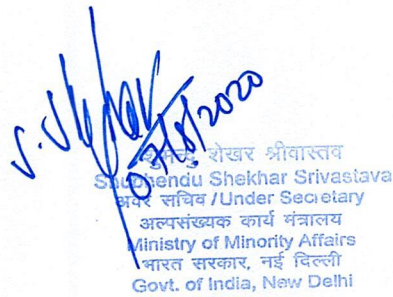 S. Shekhar
शुभेन्दु शेखर श्रीवास्तव
Shubhendu Shekhar Srivastava
अवर सचिव / Under Secretary
अल्पसंख्यक कार्य मंत्रालय
Ministry of Minority Affairs
भारत सरकार, नई दिल्ली
Govt. of India, New Delhi